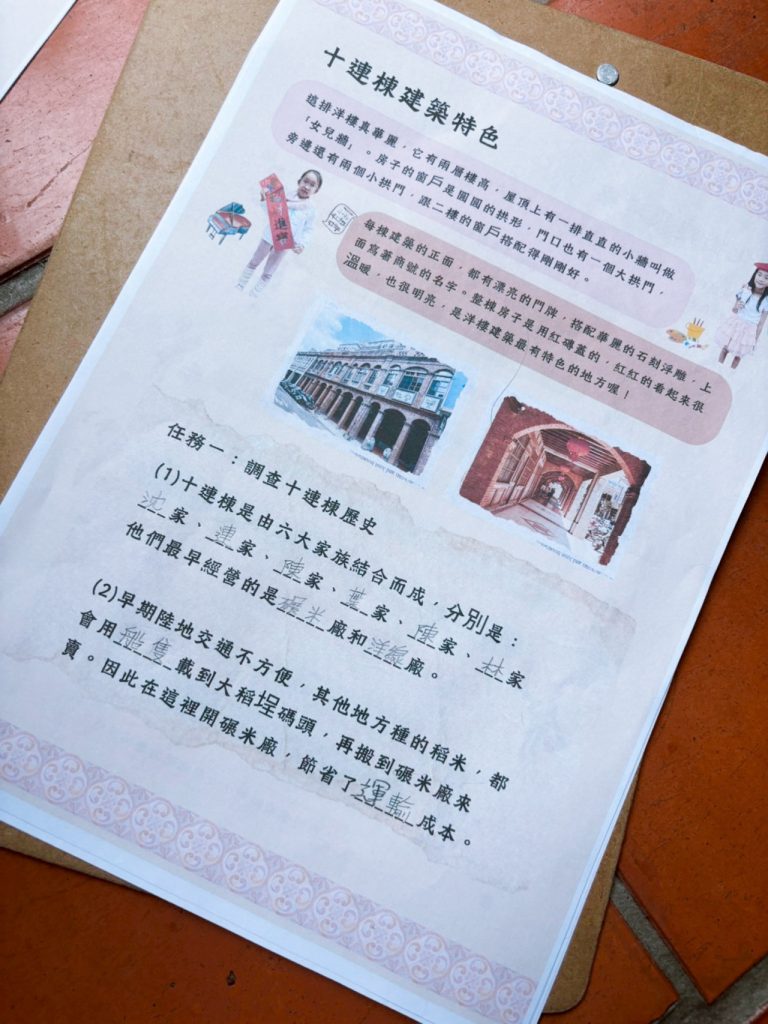 十連棟建築特色
這排洋樓真華麗，它有兩層樓高，屋頂上有一排直直的小牆叫做
「女兒牆」。房子的窗戶是圓圓的拱形，門口也有一個大拱門，
旁邊還有兩個小拱門，跟二樓的窗戶搭配得剛剛好。
每棟建築的正面，都有漂亮的門牌，搭配華麗的石刻浮雕，上
面寫著商號的名字。整棟房子是用紅磚蓋的，紅紅的看起來很
溫暖，也很明亮，是洋樓建築最有特色的地方喔！
任務一：調查十連棟歷史
(1)十連棟是由六大家族結合而成，分別是：
沈家、連家、陳家、葉家、陳家、林家
他們最早經營的是碾米廠和洋熊廠。
(2)早期陸地交通不方便，其他地方種的稻米，都
會用船隻戴到大稻埕碼頭，再搬到碾米廠來
賣。因此在這裡開碾米廠，節省了運輸成本。